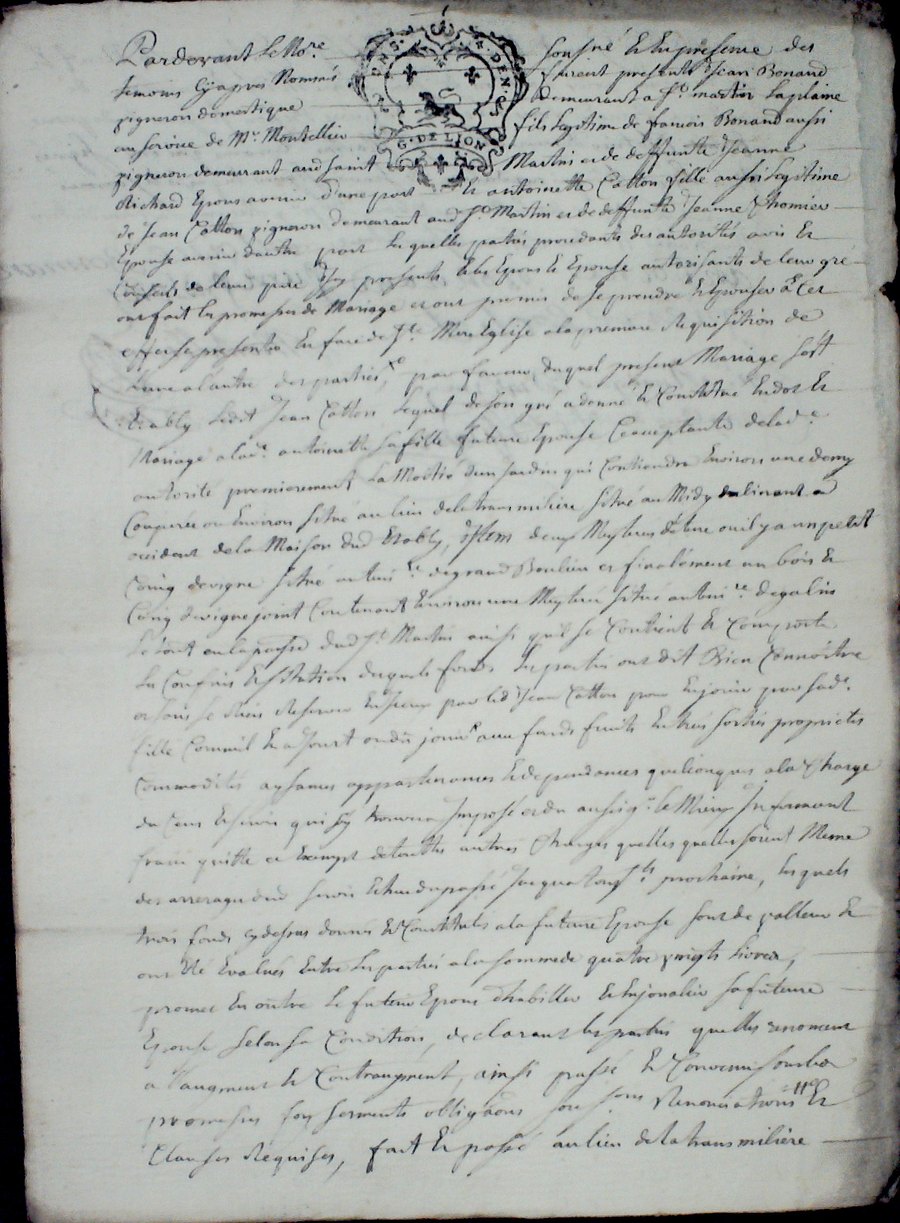 Pardevant le No.re soussigné et en presence des
temoins cy apres Nommés furent presents Jean Bonand
vigneron domestique demeurant a St. martin la plaine
au service de Mr. Montellier fils legitime de francois Bonand aussi
vigneron demeurant aud saint Martin et de deffunte Jeanne
G. DE LION
Richard Epoux avenir d'une part Et antoinette Catton fille aussi legitime
de Jean Catton vigneron demeurant aud St. Martin et de deffunte Jeanne Thomier
Epouse avenir d'autre part lesquelles parties procedants des autorités avis et
Conseils de leur pere Icy presents Et les Epoux Et Epouse autorisants de leur gré
ont fait les promesses de Mariage et ont promis de se prendre Et Epouser a Cet
effet se presenter En face de Ste. Mere Eglise a la premiere Requisition de
l'une a l'autre des parties, en faveur duquel present Mariage s'est
Etably ledit Jean Catton lequel de son gré a donné et Constitué En dot et
Mariage a lade. antoinette sa fille future Epouse acceptante de lade.
autorité premierement la Moitié d'un jardin qui Contiendra Environ une demy
Couperée ou Environ situé au lieu de la transmilière situé au Midy en tirant a
occident de la Maison dud Etably, Item deux Meyterées de terre ou il y a un petit
Coing de vigne situé au terri.re de grand Beulieu et finalement un bois et
Coing de vigne joint Contenant Environ une Meyterée située au terri.re de galin
le tout en la paroisse dud St. Martin ainsi qu'il se Contient et Comporte
les Confins Et situation desquels fonds les parties ont dit Bien Connoître
et sans se Rien Reserver par led Jean Catton pour En jouir par sade.
fille Comme Il a jouit ou dû jouir avec fonds fruits Entrées sorties proprietés
Commodités aysances appartenances et dependances quelconques a la Charge
du Cens et servis qui s'y trouvera Imposé et du au seigr. le Mieux Informant
franc quitte et Exempt de touttes autres Charges quelles qu'elles soient Meme
des arrerages dud servis Echus du passé jusqua prochaine, lesquels
trois fonds cy dessus donnés et Constitués a la future Epouse sont de valleur et
ont Eté Evalués Entre les parties a la somme de quatre vingts livres,
promet En outre le futur Epoux d'habiller et Enjoualler sa future
Epouse selon sa Condition, declarant les parties qu'elles renoncent
a l'augment et Contraugment, ainsi passé et Convenu sous les
promesses foy serments obligaons soumons Renonciations et
Clauses Requises, fait Et passé au lieu de la transmilière